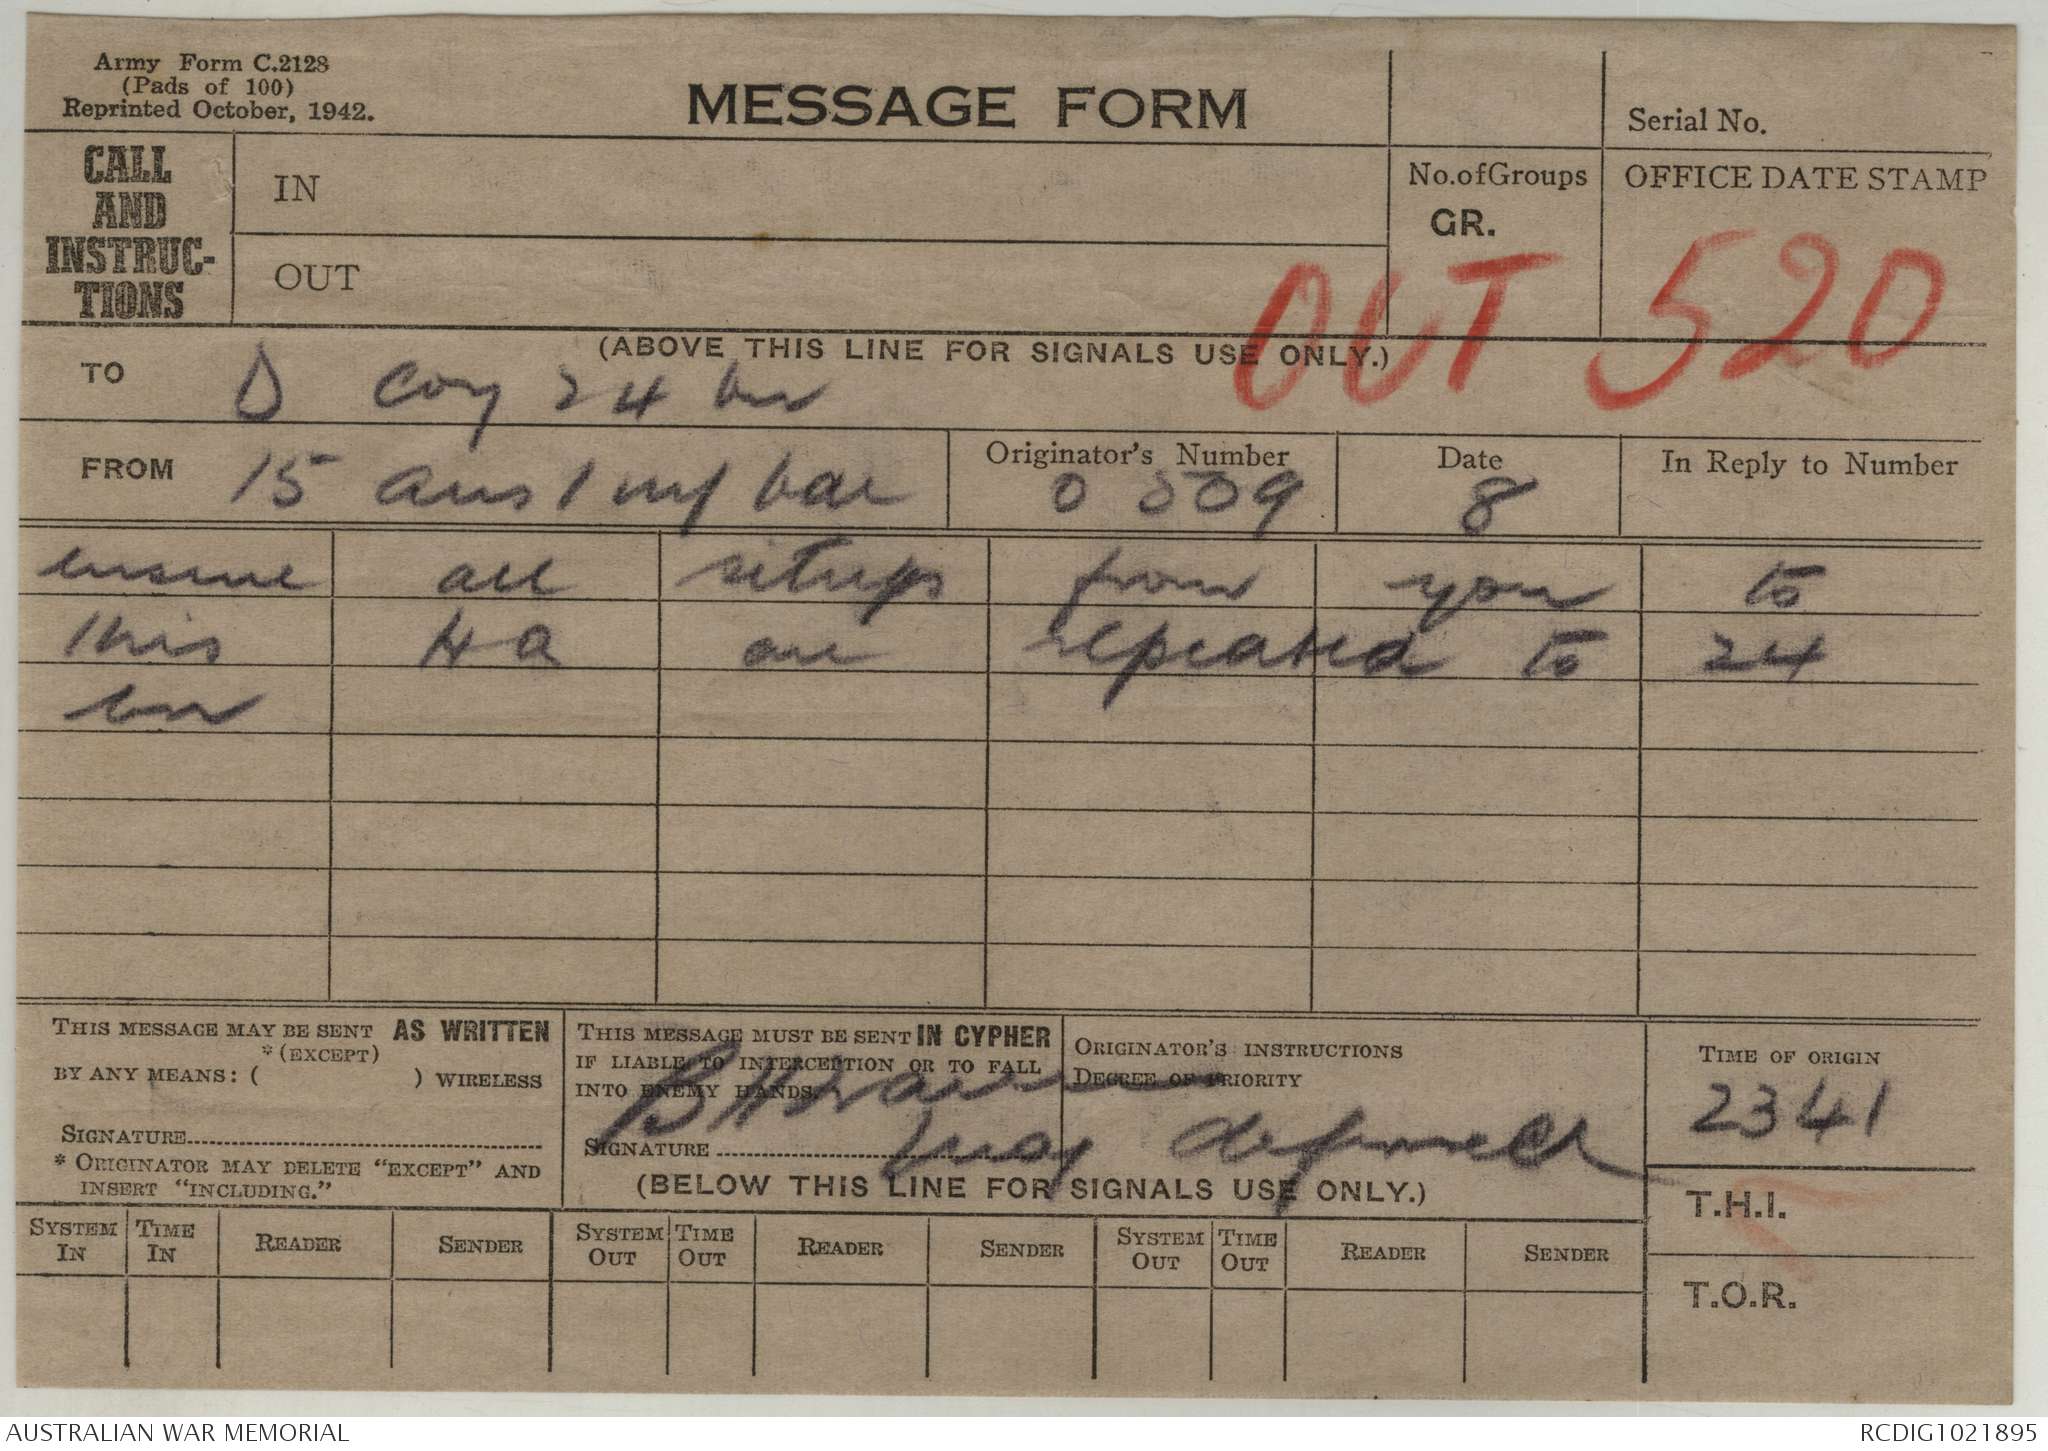 Army Form C.2128
(Pads of 100)
Reprinted October, 1942.
MESSAGE FORM
Serial No.
CALL
AND
INSTRUC-
TIONS
IN
OUT
No. of Groups
GR.
OFFICE DATE STAMP
OUT 520
(ABOVE THIS LINE FOR SIGNALS USE ONLY.)
TO D Coy 24 bn
FROM 15 aust inf bde
Originator's Number 0 509
Date 8
In Reply to Number
ensure all sitreps from you to
this HQ are repeated to 24
bn
THIS MESSAGE MAY BE SENT AS WRITTEN
*(EXCEPT)
BY ANY MEANS: ( ) WIRELESS
SIGNATURE
* ORIGINATOR MAY DELETE "EXCEPT" AND
INSERT "INCLUDING."
THIS MESSAGE MUST BE SENT IN CYPHER
IF LIABLE TO INTERCEPTION OR TO FALL
INTO ENEMY HANDS.
SIGNATURE
ORIGINATOR'S INSTRUCTIONS
DEGREE OF PRIORITY
TIME OF ORIGIN
2341
(BELOW THIS LINE FOR SIGNALS USE ONLY.)
T.H.I.
T.O.R.
SYSTEM IN TIME IN READER SENDER SYSTEM OUT TIME OUT READER SENDER SYSTEM OUT TIME OUT READER SENDER
AUSTRALIAN WAR MEMORIAL
RCDIG1021895